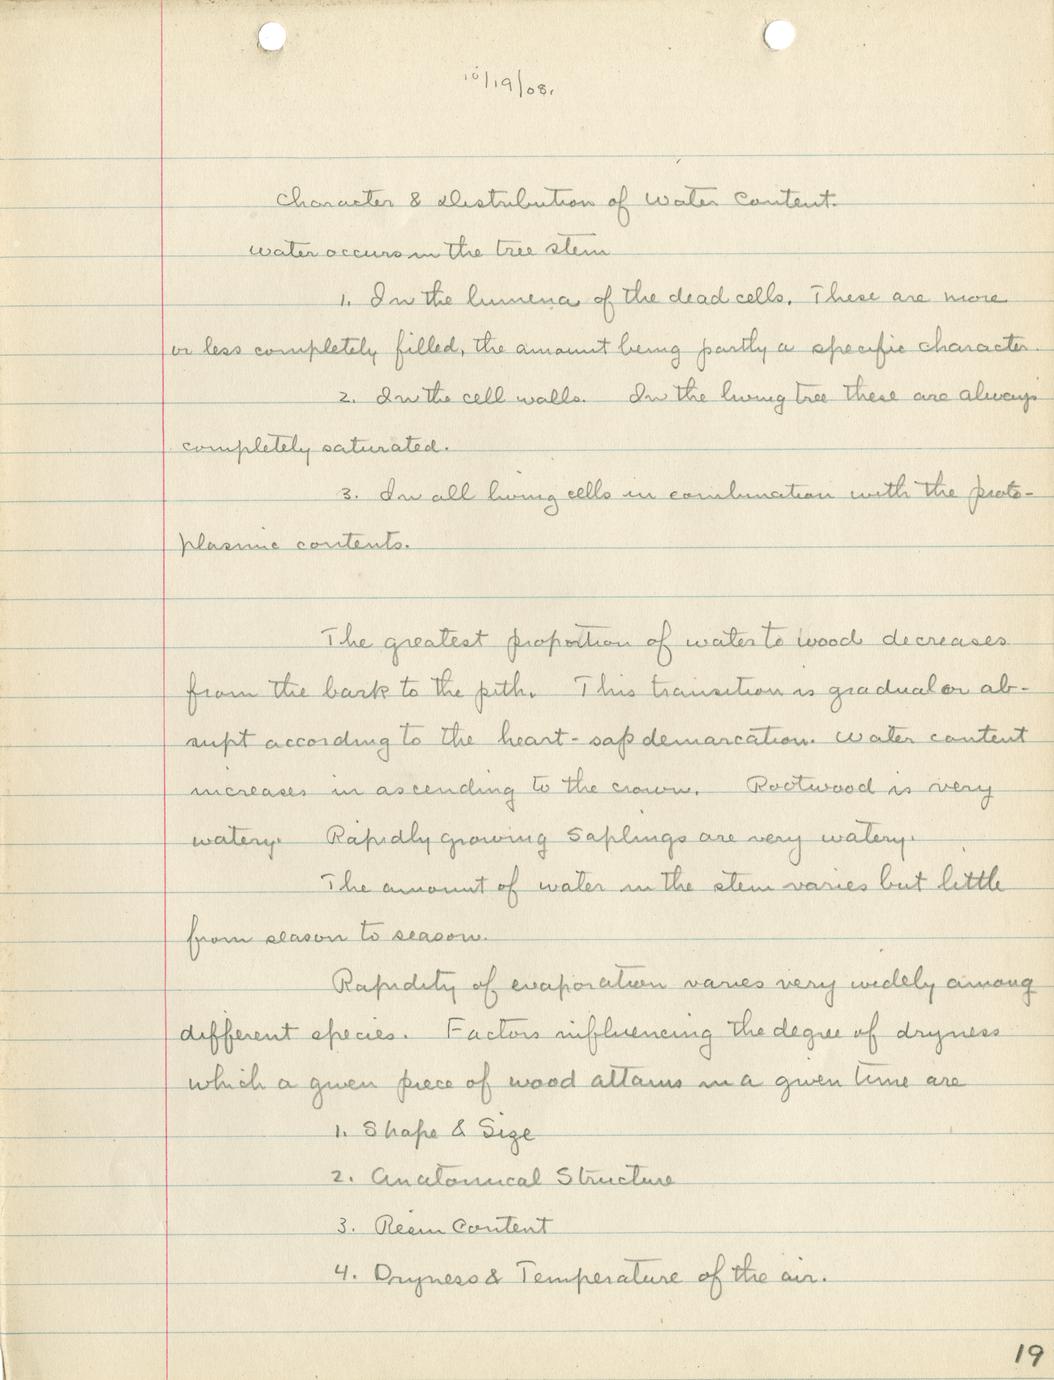 10/19/08.
Character & Distribution of Water Content.
Water occurs in the tree stem
1. In the lumena of the dead cells. These are more
or less completely filled, the amount being partly a specific character.
2. In the cell walls. In the living tree these are always
completely saturated.
3. In all living cells in combination with the proto-
plasmic contents.
The greatest proportion of water to wood decreases
from the bark to the pith. This transition is gradual or ab-
rupt according to the heart-sap demarcation. Water content
increases in ascending to the crown. Rootwood is very
watery. Rapidly growing saplings are very watery.
The amount of water in the stem varies but little
from season to season.
Rapidity of evaporation varies very widely among
different species. Factors influencing the degree of dryness
which a given piece of wood attains in a given time are
1. Shape & Size
2. Anatomical Structure
3. Resin Content
4. Dryness & Temperature of the air.
19